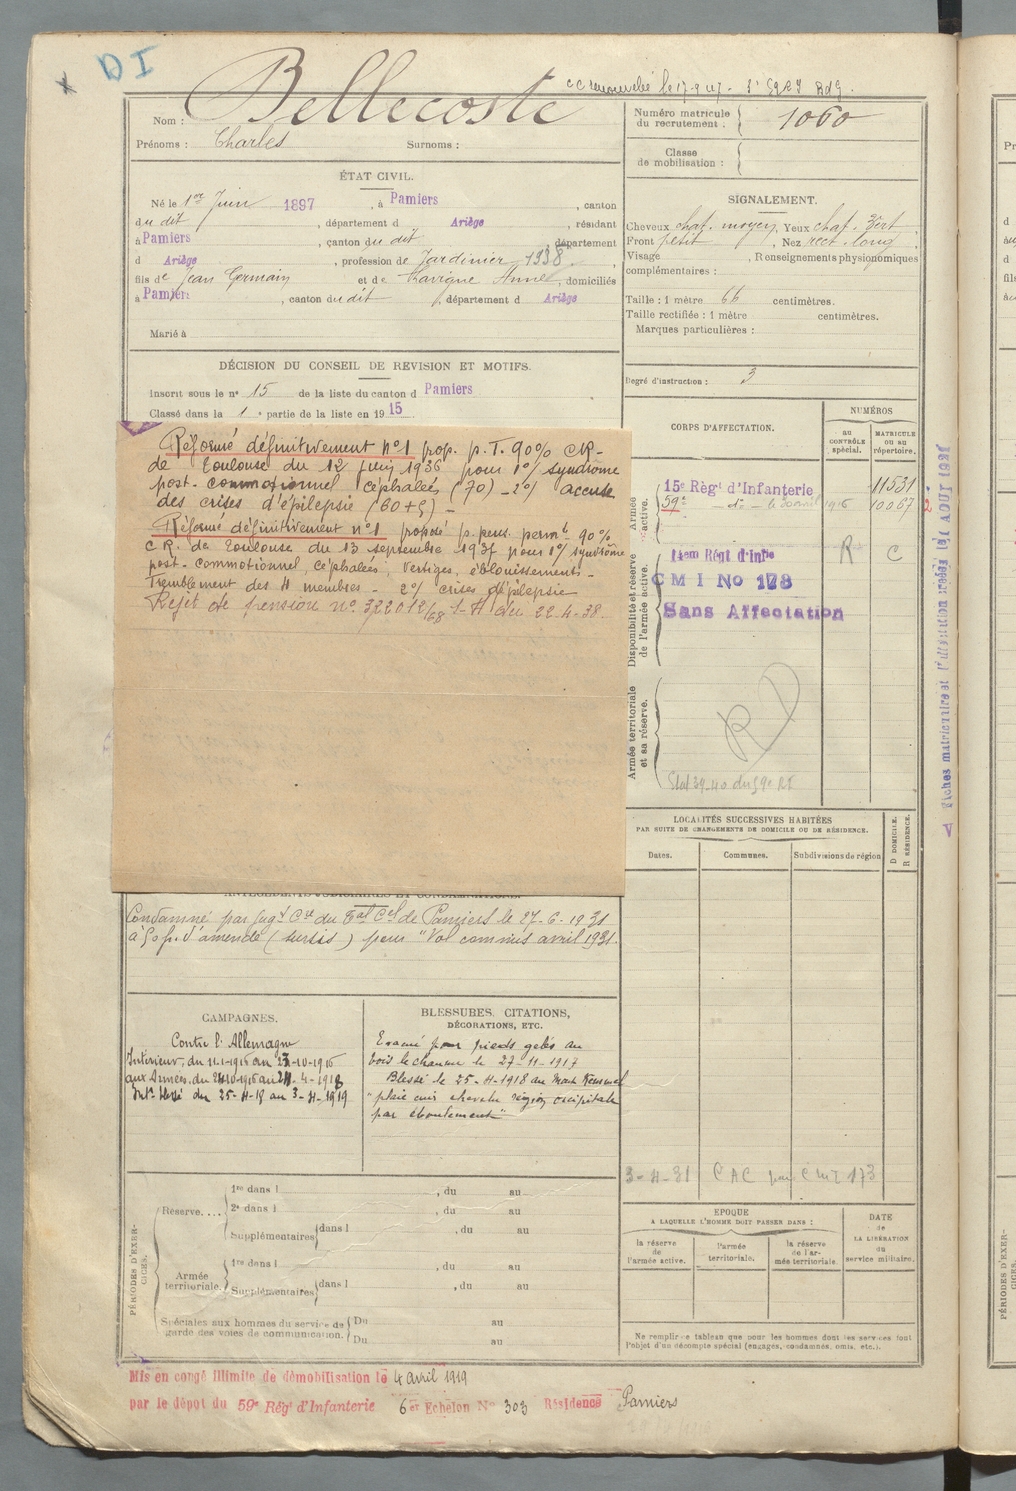 DI
Bellecoste
cc renouvelé le 17-9-47-
Nom :
Prénoms : Charles Surnoms :
Numéro matricule du recrutement : 1060
Classe de mobilisation :
ÉTAT CIVIL.
Né le 1er Juin 1897, à Pamiers, canton
du dit, département d Ariège, résidant
à Pamiers, canton du dit, département
d Ariège, profession de Jardinier 1938,
fils de Jean Germain et de Anne, domiciliés
à Pamiers, canton du dit, département d Ariège
Marié à
SIGNALEMENT.
Cheveux chat. moyen, Yeux chat. vert,
Front petit, Nez rect. long,
Visage , Renseignements physionomiques
complémentaires :
Taille : 1 mètre 66 centimètres.
Taille rectifiée : 1 mètre centimètres.
Marques particulières :
Degré d'instruction : 3
DÉCISION DU CONSEIL DE REVISION ET MOTIFS.
Inscrit sous le n° 15 de la liste du canton d Pamiers
Classé dans la 1e partie de la liste en 1915
Réformé définitivement n°1 prop. p. T. 90% CR-
de Toulouse du 12 juin 1936 pour 1°/ syndrome
post-commotionnel céphalées (70) - 2°/ accuse
des crises d'épilepsie (60+5) -
Réformé définitivement n°1 proposé p. pens. permte 90%
CR. de Toulouse du 13 septembre 1937 pour 1°/ syndrome
post-commotionnel, céphalées, vertiges, éblouissements-
Tremblement des 4 membres - 2°/ crises d'épilepsie
Rejet de pension n° 322012/68 du 22-4-38.
CORPS D'AFFECTATION.
NUMÉROS
au contrôle spécial.
matricule ou au répertoire.
Armée active.
15e Régt d'Infanterie 11531
59e - do - 1916 10067
Disponibilité et réserve de l'armée active.
14em Régt d'Infie R C
CMI No 178
Sans Affectation
Armée territoriale et sa réserve.
RD
Etat 39-40 du 59e RI
Fiches matricules
LOCALITÉS SUCCESSIVES HABITÉES
PAR SUITE DE CHANGEMENTS DE DOMICILE OU DE RÉSIDENCE.
Dates. Communes. Subdivisions de région
D DOMICILE. R RÉSIDENCE.
3-4-31 CAC
ANTÉCÉDENTS JUDICIAIRES ET CONDAMNATIONS.
Condamné par jugt Cel du Tal Cel de Pamiers le 27-6-1931
à 50 f. d'amende (sursis) pour "Vol commis avril 1931.
CAMPAGNES.
Contre l'Allemagne
Intérieur, du 11-1-1916 au 23-10-1916
aux Armées du 24-10-1916 au 24-4-1918
Intr blessé du 25-4-18 au 3-4-1919
BLESSURES, CITATIONS,
DÉCORATIONS, ETC.
Evacué pour pieds gelés au
bois le chaume le 27-11-1917
Blessé le 25-4-1918 au Mont Kemmel
"plaie cuir chevelu région occipitale
par éboulement"
PÉRIODES D'EXERCICES.
Réserve....
1re dans l , du au
2e dans l , du au
Supplémentaires dans l , du au
Armée territoriale.
1re dans l , du au
Supplémentaires dans l , du au
Spéciales aux hommes du service de garde des voies de communication.
Du au
Du au
EPOQUE
A LAQUELLE L'HOMME DOIT PASSER DANS :
la réserve de l'armée active.
l'armée territoriale.
la réserve de l'armée territoriale.
DATE de LA LIBÉRATION du service militaire.
Ne remplir ce tableau que pour les hommes dont les services font
l'objet d'un décompte spécial (engagés, condamnés, omis, etc.).
Mis en congé illimité de démobilisation le 4 avril 1919
par le dépôt du 59e Régt d'Infanterie 6er Echelon N° 303 Résidence Pamiers
PÉRIODES D'EXERCICES.